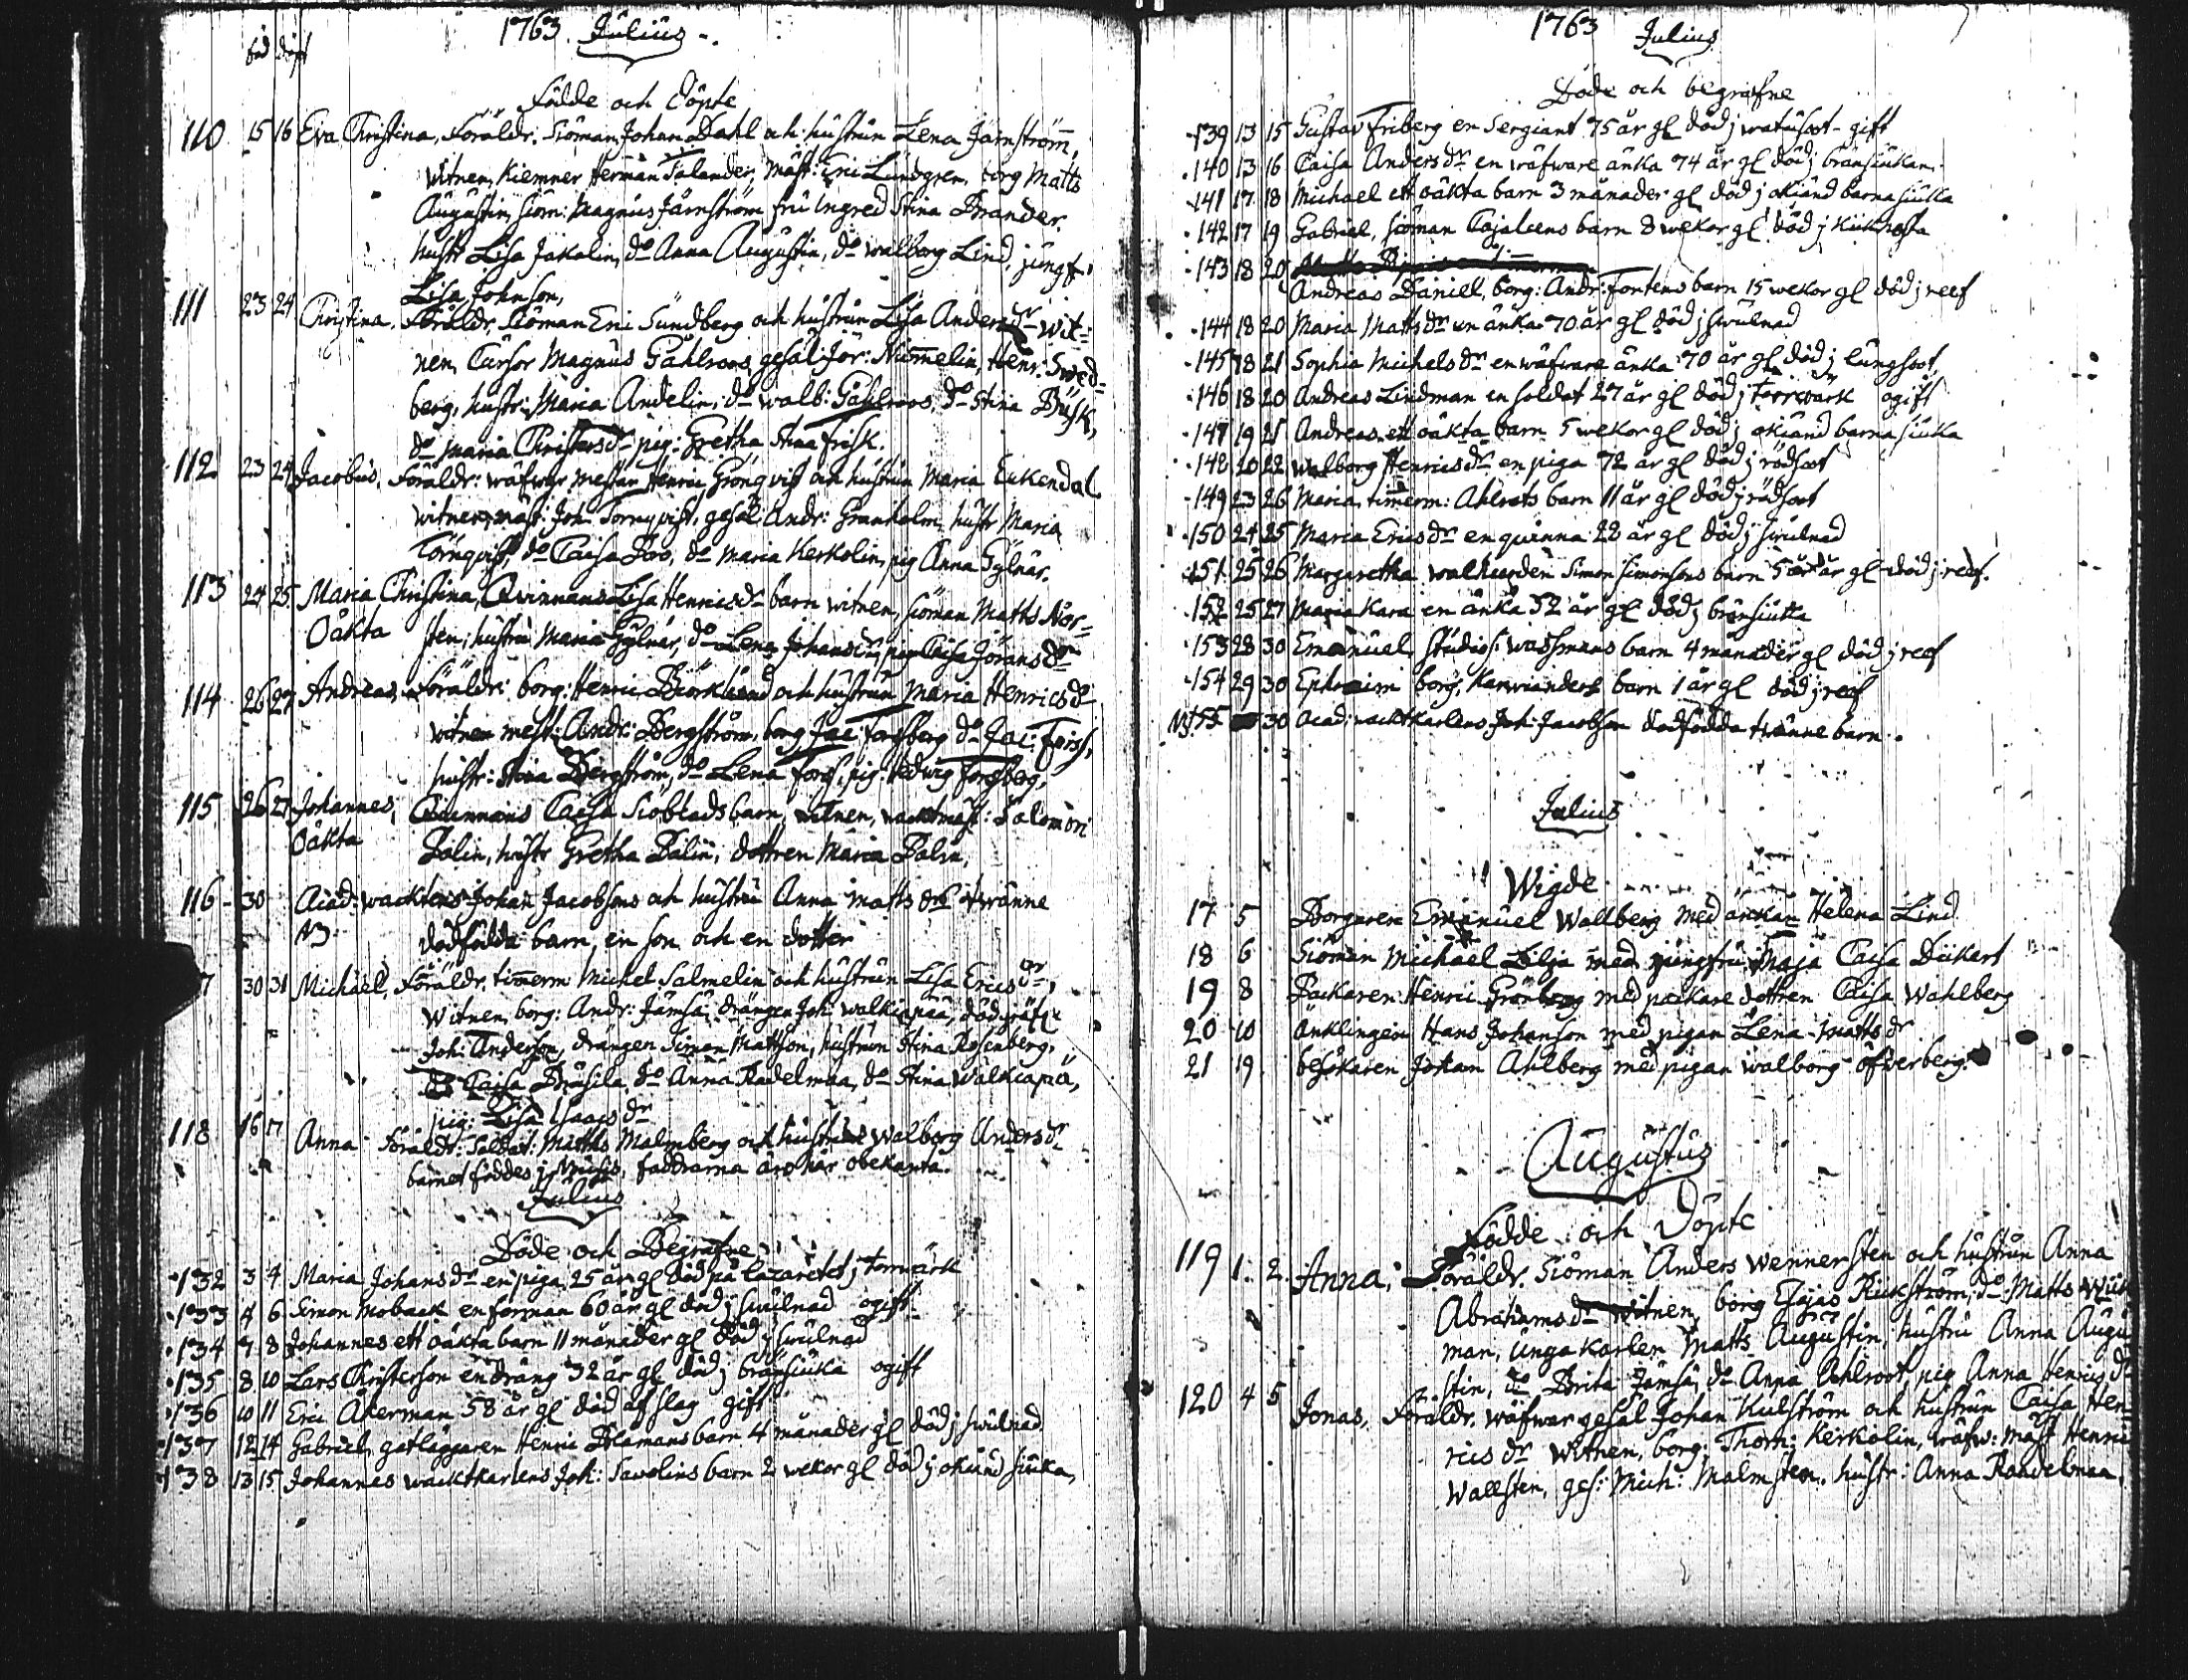 1763. Julius
föd döpt
Födde och Döpte
110 15 16 Eva Christina, Föräldr. Siöman Johan Dahl och hustrun Lena Järnström,
witnen, Kiemner Herman Talander, mäst: Eric Lundgren, borg Matts
Augustin, siöm: Magnus Järnström, fru Ingred Stina Brander.
hustr Lisa Jakolin, do Anna Augustin, do walborg Lind, jungf.
Lisa Johnson,
111 23 24 Christina, Föräldr. Siöman Eric Sundberg och hustrun Lisa Andersdr wit=
nen, Cursor Magnus Gåhlroos, gesäl Jör: Nummelin, Henr: Swed=
berg, hustr: Maria Andelin, do walb: Gåhlroos, do Stina Busk,
do Maria Christersdr pig: Gretha Stina Frisk.
112 23 24 Jacobus, Föräldr: wäfwar mestar Henric Grönqvist och hustrun Maria Enkendal
witnen, mäst: Joh. Törnqvist, gesäl: Andr: Granholm, hustr Maria
Törnqvist, do Caisa Boo, do Maria Kerkolin, pig Anna Gylnär.
113 24 25 Maria Christina, Qvinnans Lisa Henricsdr barn witnen, siöman Matts Nor=
Oäkta sten, hustru Maria Gylnär, do Lena Johansdr, pig Caisa Jöransdr
114 26 27 Andreas, Föräldr: borg: Henric Biörklund och hustrun Maria Henricsdr
witnen mest: Andr: Bergström, borg Jac Forsberg do Jac: Friss,
hustr: Stina Bergström, do Lena Forss, pig: Hedwig Forsberg,
115 26 27 Johannes, Quinnans Caisa Siöblads barn, witnen, wacktmäst: Salomon
Oäkta Palin, hustr Gretha Palin, dottren Maria Palin,
116 30 Acad: wacktens Johan Jacobsons och hustru Anna Matts drs twänne
NB dödfödda barn, en son och en dotter
7 30 31 Michäel, Föräldr. timerm Michel Salmelin och hustrun Lisa Ericsdr,
Witnen, borg: Andr: Jämsä, drängen Joh: walkiapää, dödgräf:
Joh: Anderson, drängen Simon Mattson, hustrun Stina Rosenberg,
do Caisa Drusila, do Anna Radelmaa, do Stina Walkiapä,
pig: Lisa Isaacsdr
118 16 17 Anna Föräldr: Soldat: Matths Malmberg och hustrun Walborg Andersdr
barnet föddes j Nousis, faddrarna äro här obekanta.
Julius
Döde och Begrafne
132 3 4 Maria Johansdr en piga 25 år gl död på lazaretet j torrwärk
133 4 6 Simon Moback en forman 60 år gl död j swulnad ogift
134 7 8 Johannes ett oäkta barn 11 månader gl död j swulnad
135 8 10 Lars Christerson en dräng 32 år gl död j bränsiuka ogift
136 10 11 Eric Åkerman 58 år gl död af slag gift
137 12 14 Gabriel, gatläggaren Henric Blåmans barn 4 månader gl död j swulnad
138 13 15 Johannes wacktkarlens Joh: Savolins barn 2 wekor gl död j okiänd siuka,
1763 Julius
Döde och begrafne
139 13 15 Gustav Friberg en Sergiant 75 år gl död j watusoot - gift
140 13 16 Caisa Andersdr en wäfware änka 74 år gl död j bränsiukan
141 17 18 Michael ett oäkta barn 3 månader gl död j okiänd barnasiuka
142 17 19 Gabriel, siöman Cajalens barn 8 wekor gl död j kikhosta
143 18 20
Andreas Daniel, borg: Andr: Fontens barn 15 wekor gl död j reef
144 18 20 Maria Mattsdr en änka 70 år gl död j swulnad
145 18 21 Sophia Michelsdr en wäfware änka 70 år gl död j lungsoot,
146 18 20 Andreas Lindman en soldat 27 år gl död j torrwärk ogift
147 19 21 Andreas ett oäkta barn 5 wekor gl död j okiänd barnasiuka
148 20 22 Walborg Henricsdr en piga 72 år gl död j rödsoot
149 23 26 Maria, timerm: Ahlrots barn 11 år gl död j rödsoot
150 24 25 Maria Ericsdr en quinna 22 år gl död j swulnad
151 25 26 Margaretha walhunden Simon Simonsons barn 5 år gl död j reef.
152 25 27 Maria Kara en änka 52 år gl död j bränsiuka
153 28 30 Emanuel, studios: wassmans barn 4 månader gl död j reef
154 29 30 Ephraim borg: Karwianders barn 1 år gl död j reef
NB 155 30 acad: wacktkarlens Joh: Jacobson dödfödda twänne barn.
Julius
Wigde
17 5 Borgaren Emanuel Wallberg med änckan Helena Lind
18 6 Siöman Michael Lilja med jungfru Maja Caisa Dikert
19 8 Packaren Henric Grönberg med packare dottren Caisa Wahlberg
20 10 änklingen Hans Johanson med pigan Lena Matts dr
21 19 besökaren Johan Ahlberg med pigan walborg öfwerberg.
Augustus
Födde och Döpte
119 1. 2. Anna, Föräldr. Siöman Anders Wennersten och hustrun Anna
Abrahamsdr witnen, borg Esajas Rickström, do Matts Wik
man, unga karlen Matts Augustin, hustru Anna Augu
stin, do Brita Jämsä, do Anna Ahlroot, pig Anna Henricsdr
120 4 5 Jonas, Föräldr. Wäfwar gesäl Johan Kulström och hustrun Caisa Hen
rics dr witnen, borg: Thom: Kerkolin, wäfw: mäst Henric
Wallsten, ges: Mich: Malmsten, hustr: Anna Raadelmaa,